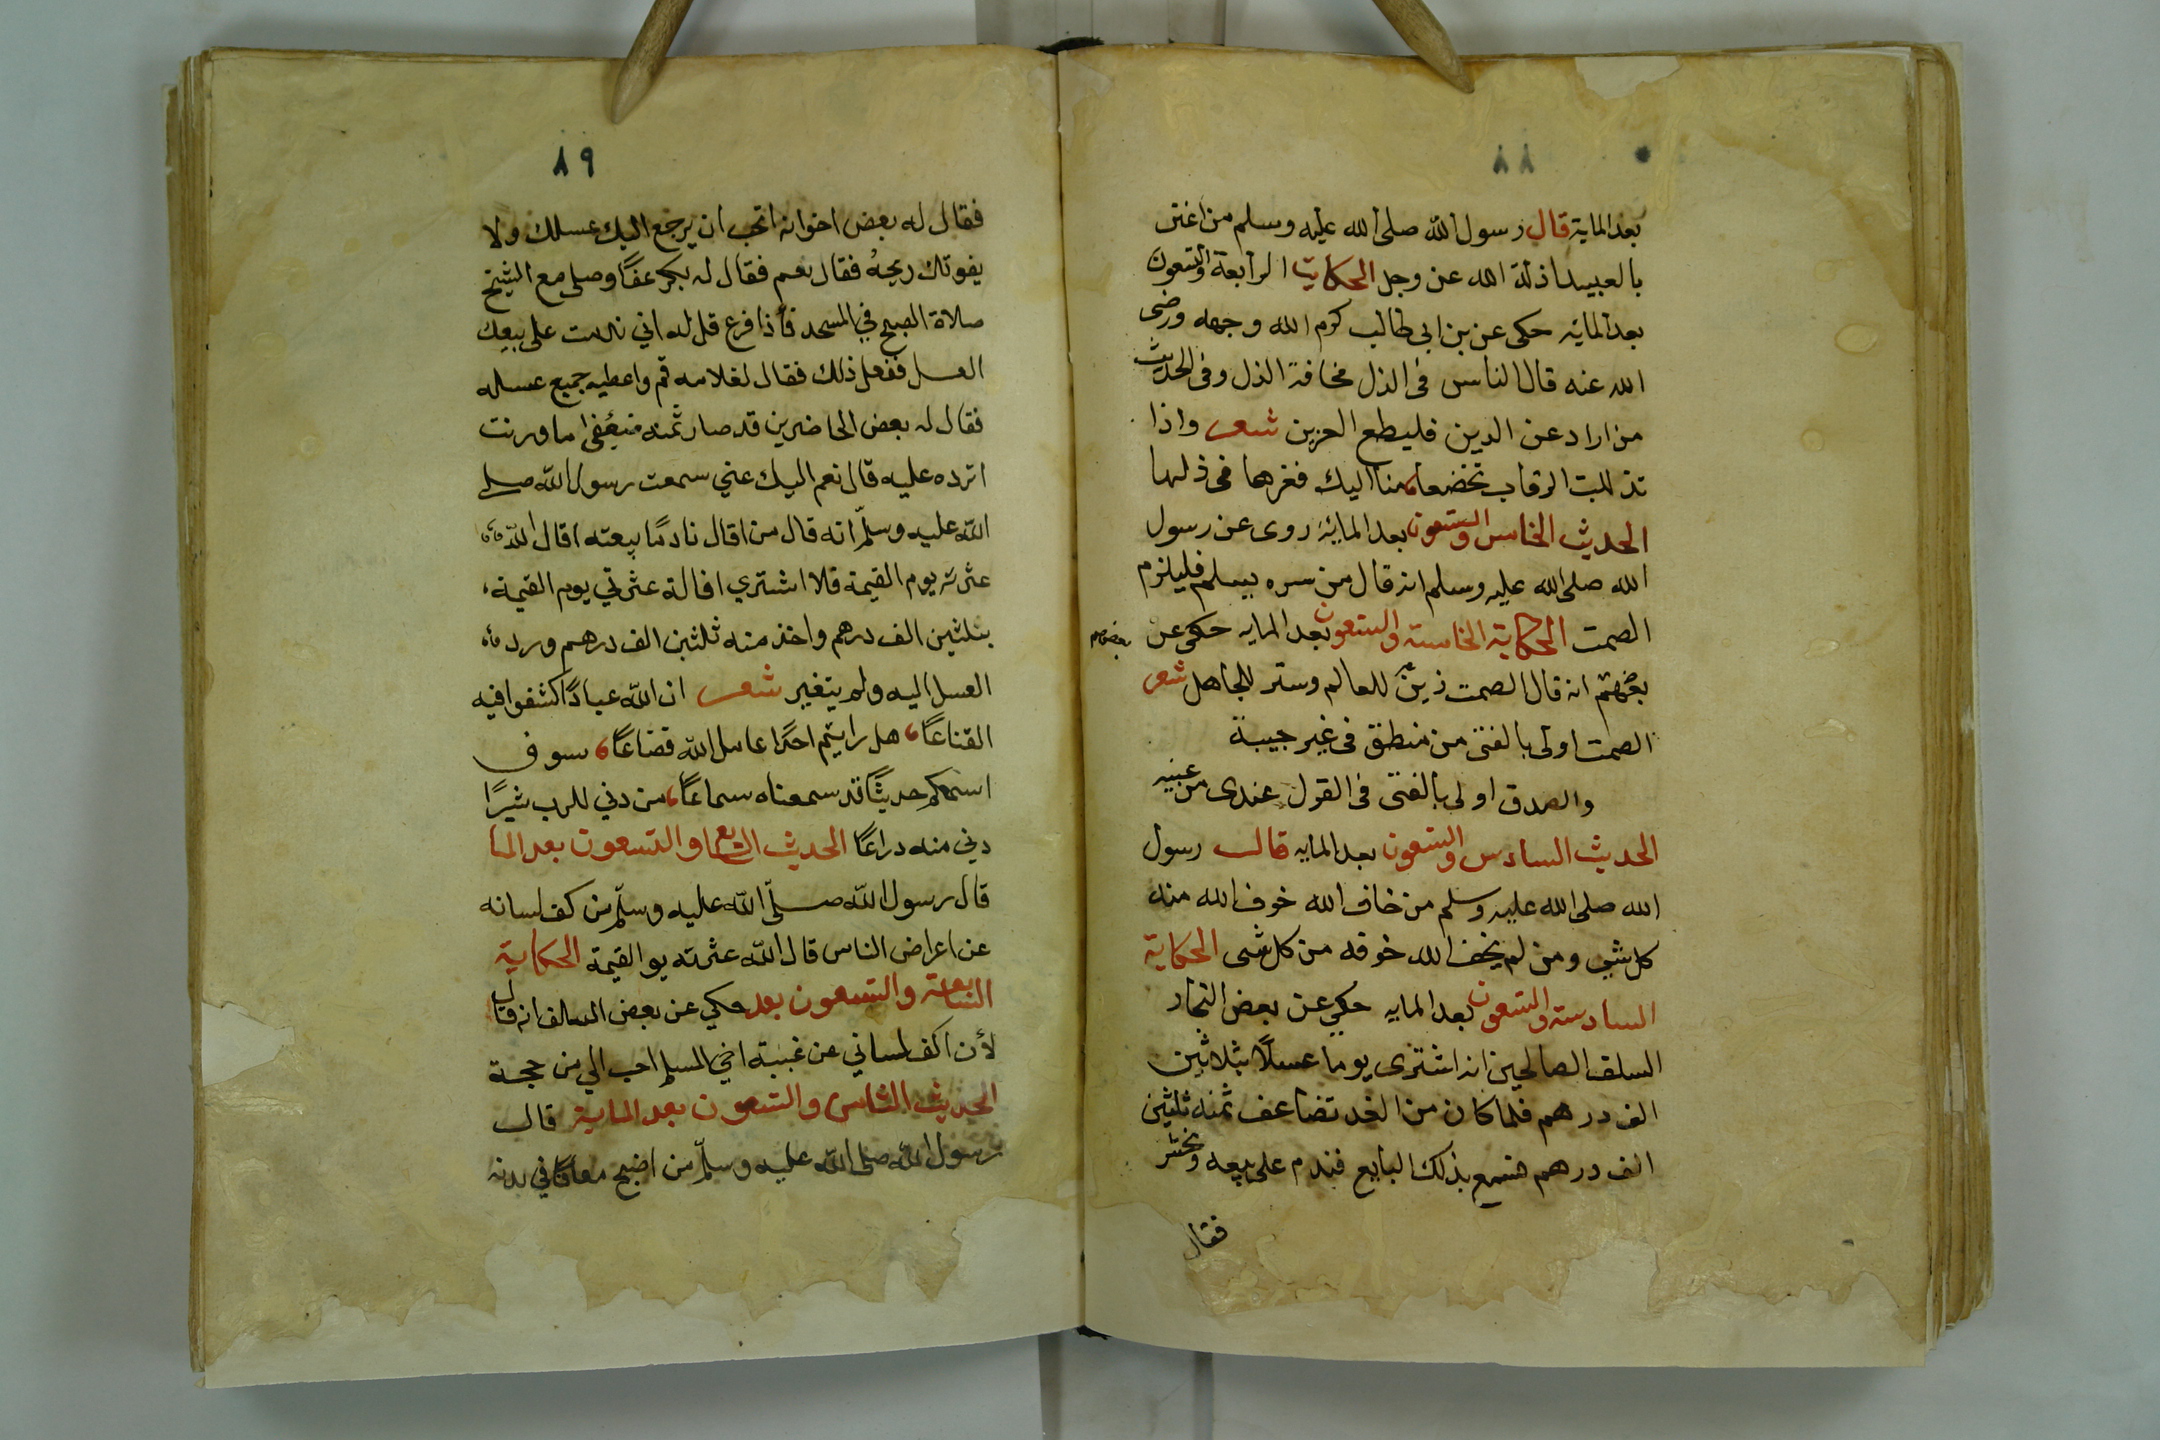 ٨٨
بعد الماية قال رسول الله صلى الله عليه وسلم من اعتز
بالعبيد اذله الله عن وجل الحكاية الرابعة والتسعون
بعد المايه حكى عن بن ابى طالب كرم الله وجهه ورضى
الله عنه قال الناس فى الذل مخافة الذل وفى الحديث
من اراد عن الدين فليطع العزيز شعر واذا
تذللت الرقاب تخضعا منا اليك فعزها فى ذلها
الحديث الخامس والتسعون بعد الماية روى عن رسول
الله صلى الله عليه وسلم انه قال من سره يسلم فليلزم
الصمت الحكاية الخامسة والتسعون بعد المايه حكى عن
بعضهم
بعضهم انه قال الصمت زين للعالم وستر للجاهل شعر
الصمت اولى بالفتى من منطق فى غير جيبة
والصدق اولى بالفتى فى القول عندى من عيبه
الحديث السادس والتسعون بعد المايه قال رسول
الله صلى الله عليه وسلم من خاف الله خوف الله منه
كل شي ومن لم يخف الله خوفه من كل شى الحكاية
السادسة والتسعون بعد المايه حكي عن بعض التجار
السلف الصالحين انه اشترى يوما عسلاً بثلاثين
الف درهم فلما كان من الغد تضاعف ثمنه ثلثين
الف درهم فسمع بذلك البايع فندم على بيعه وخسر
فقال
٨٩
فقال له بعض اخوانه اتحب ان يرجع اليك عسلك ولا
يفوتك ريحهُ فقال نعم فقال له بكر عفاً وصلى مع الشيخ
صلاة الصبح في المسجد فأذا فرغ قل له اني ندمت على بيعك
العسل ففعل ذلك فقال لغلامه قم واعطيه جميع عسله
فقال له بعض الحاضرين قد صار ثمنه
اترده عليه قال نعم اليك عني سمعت رسول الله صلى
الله عليه وسلّم انه قال من اقال نادمًا بيعته اقال الله
عثرته يوم القيمة فلا اشتري اقالة عثرتي يوم القيمة
بثلثين الف درهم واخذ منه ثلثين الف درهم ورد
العسل اليه ولم يتغير شعر ان الله عباداً كشفوا فيه
القناعاً، هل رايتم احدًا عامل الله فضاعاً، سوف
اسمعكم حديثاً قد سمعناه سماعاً، من دني للرب شبرًا
دني منه دراعًا الحديث السابع والتسعون بعد الما
قال رسول الله صلّى الله عليه وسلّم من كف لسانه
عن اعراض الناس قال الله عثرته يو القيمة الحكاية
السابعة والتسعون بعد حكي عن بعض السالف انه قال
لأن اكف لساني عن غيبة اخي المسلم احب الي من حجة
الحديث الثامن والتسعون بعد الماية قال
رسول الله صلى الله عليه وسلّم من اصبح معافًا في بدنه